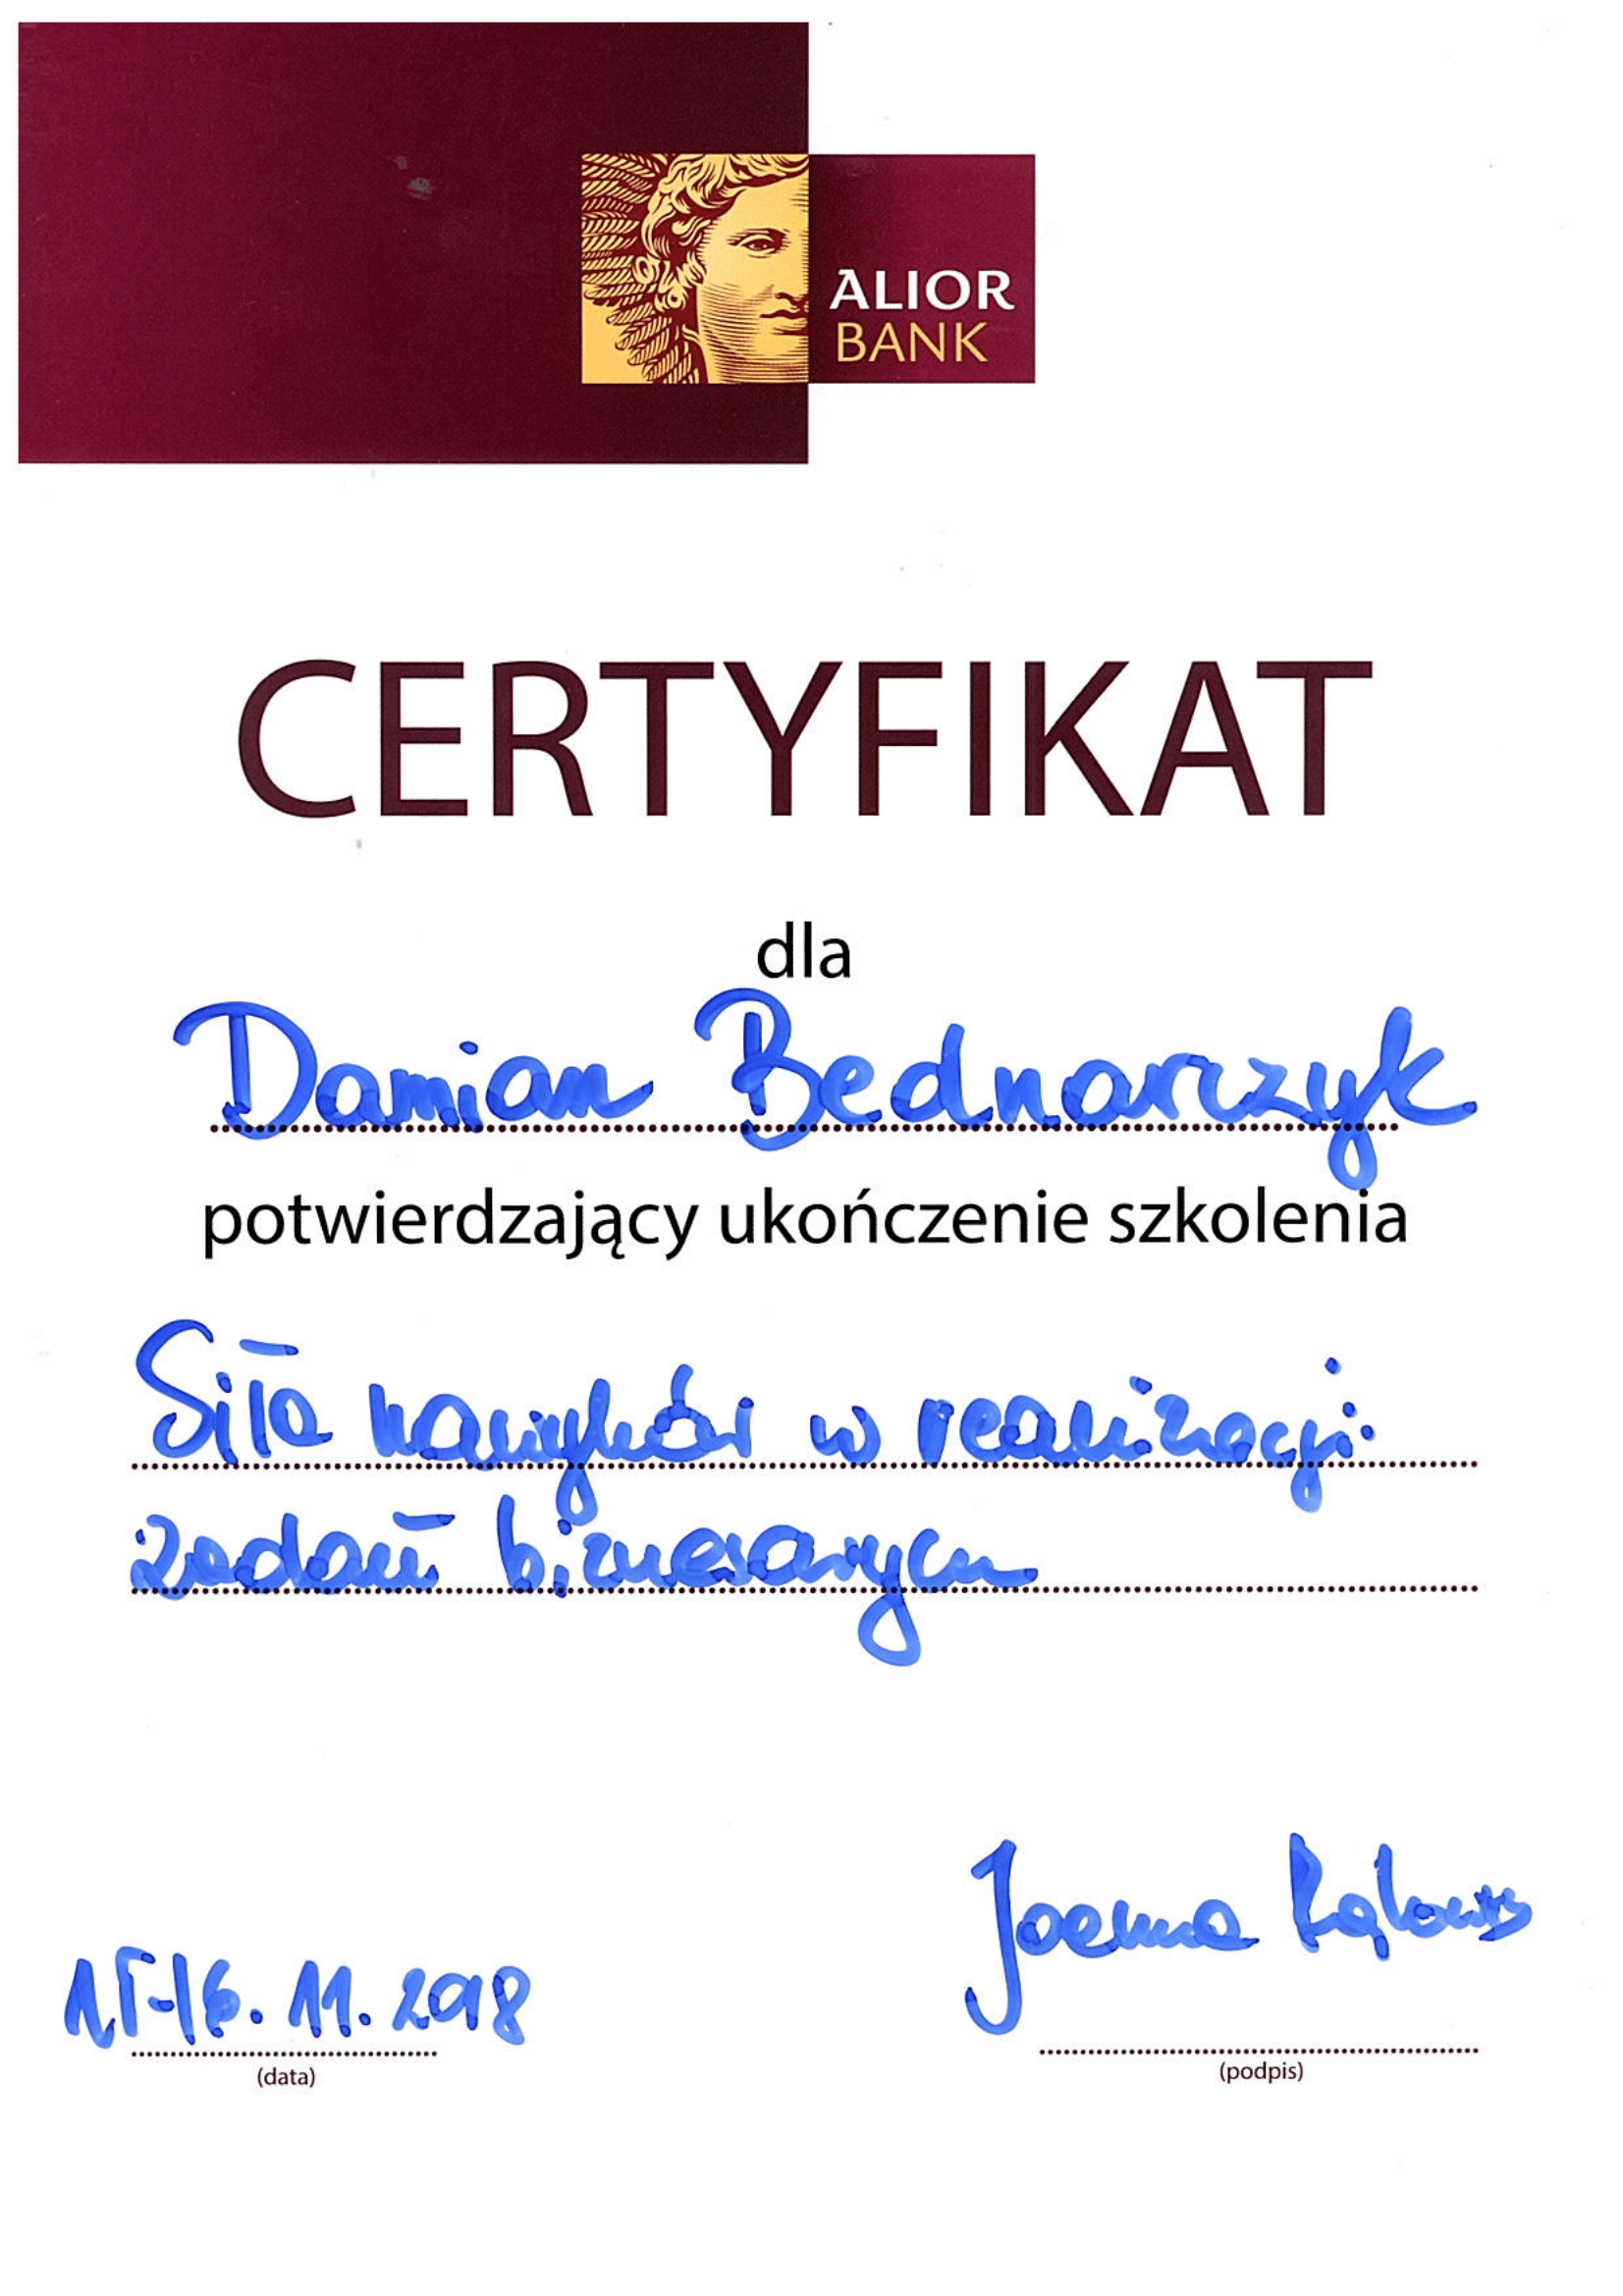 ALIOR
BANK
CERTYFIKAT
dla
Damian Bednarczyk
potwierdzający ukończenie szkolenia
Siła nawyków w realizacji
zadań biznesowych
15-16.11.2018
Joanna
(data)
(podpis)